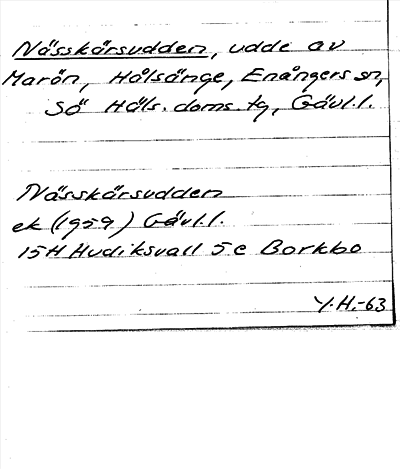 Nässkärsudden, udde av
Marön, Hålsänge, Enångers sn,
Sö Häls. doms. tg, Gävl.l.
Nässkärsudden
ek (1959) Gävl.l.
15H Hudiksvall 5c Borkbo
Y.H.-63